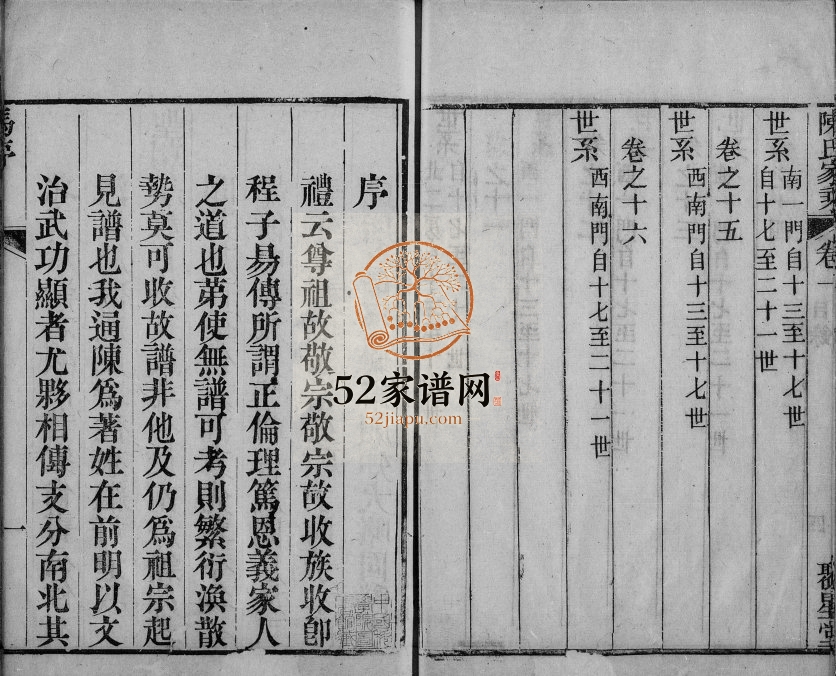 陳氏家乘 卷一
聚星堂
世系 南一門自十三至十七世
自十七至二十一世
卷之十五
世系 西南門自十三至十七世
卷之十六
世系 西南門自十七至二十一世
序
禮云尊祖故敬宗敬宗故收族收卽
程子易傳所謂正倫理篤恩義家人
之道也苐使無譜可考則繁衍渙散
勢莫可收故譜非他及仍爲祖宗起
見譜也我通陳爲著姓在前明以文
治武功顯者尤夥相傳支分南北其
一
52家谱网
52jiapu.com